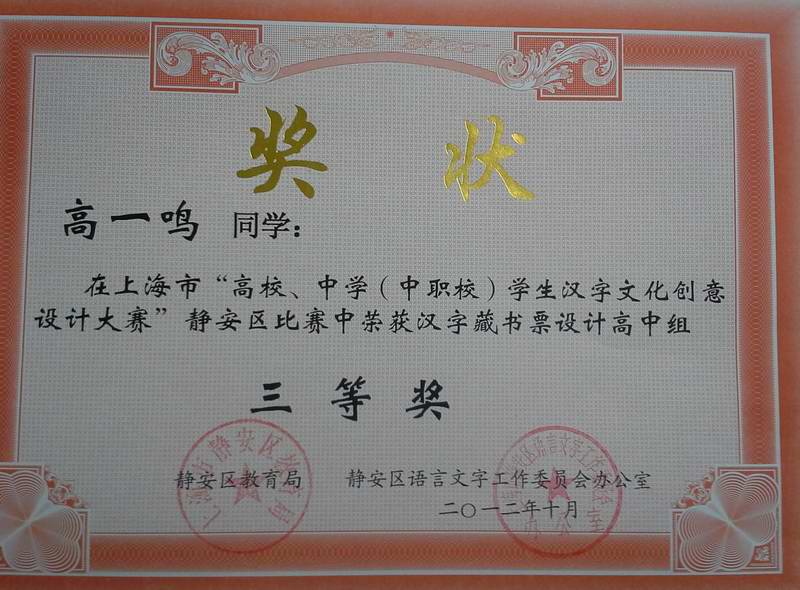 奖状
高一鸣 同学：
在上海市“高校、中学（中职校）学生汉字文化创意
设计大赛”静安区比赛中荣获汉字藏书票设计高中组
三等奖
静安区教育局 静安区语言文字工作委员会办公室
二〇一二年十月
上海市静安区教育局